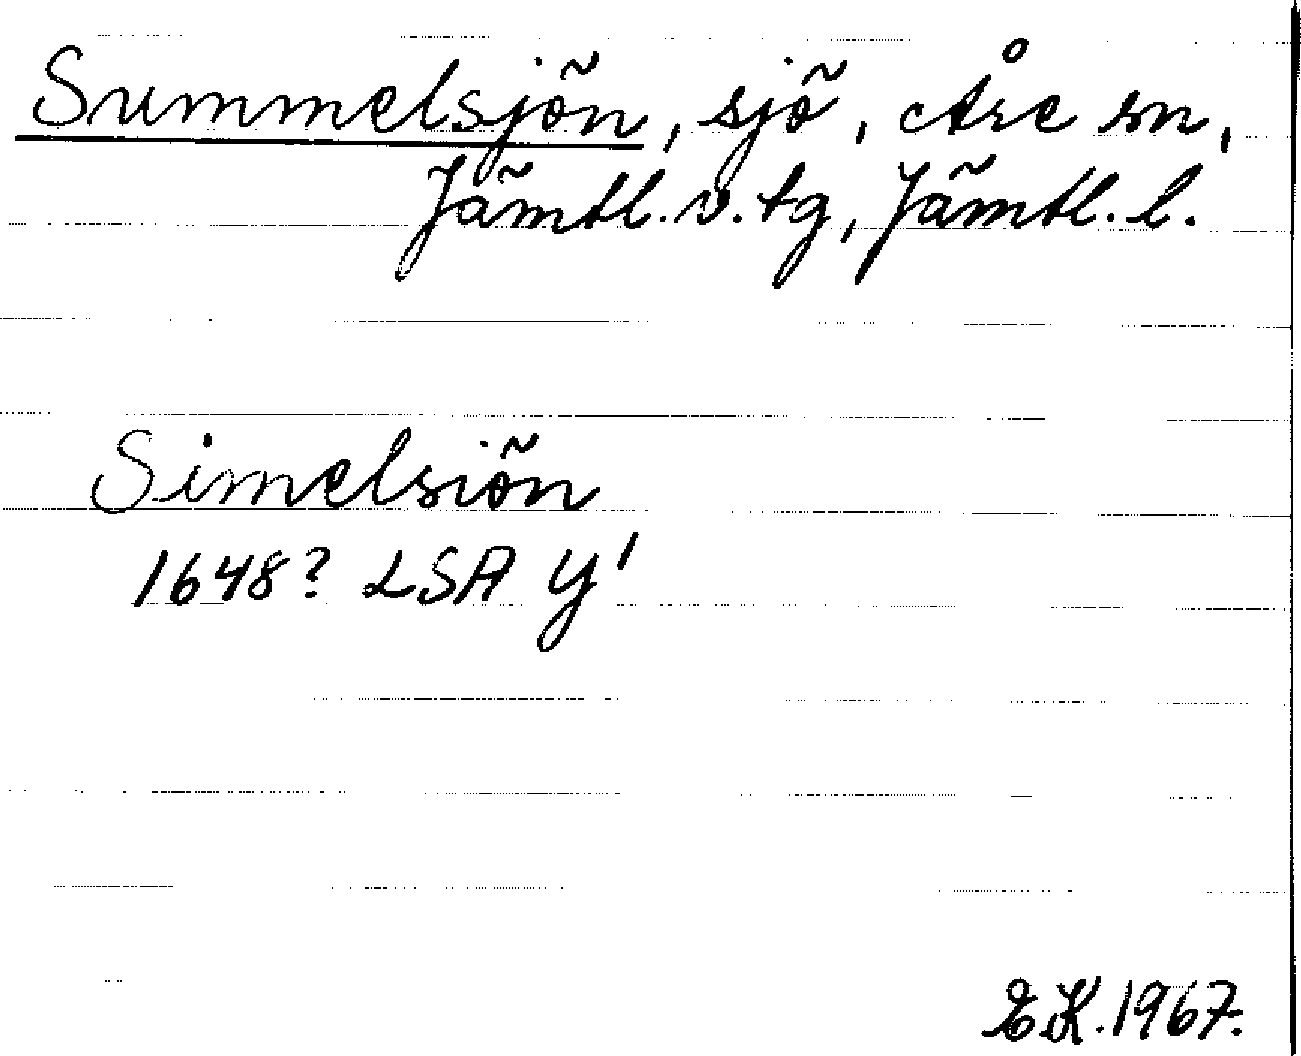 Summelsjön, sjö, Åre sn,
Jämtl. v. tg, Jämtl. l.
Simelsiön
1648? LSA Y¹
E.K. 1967.